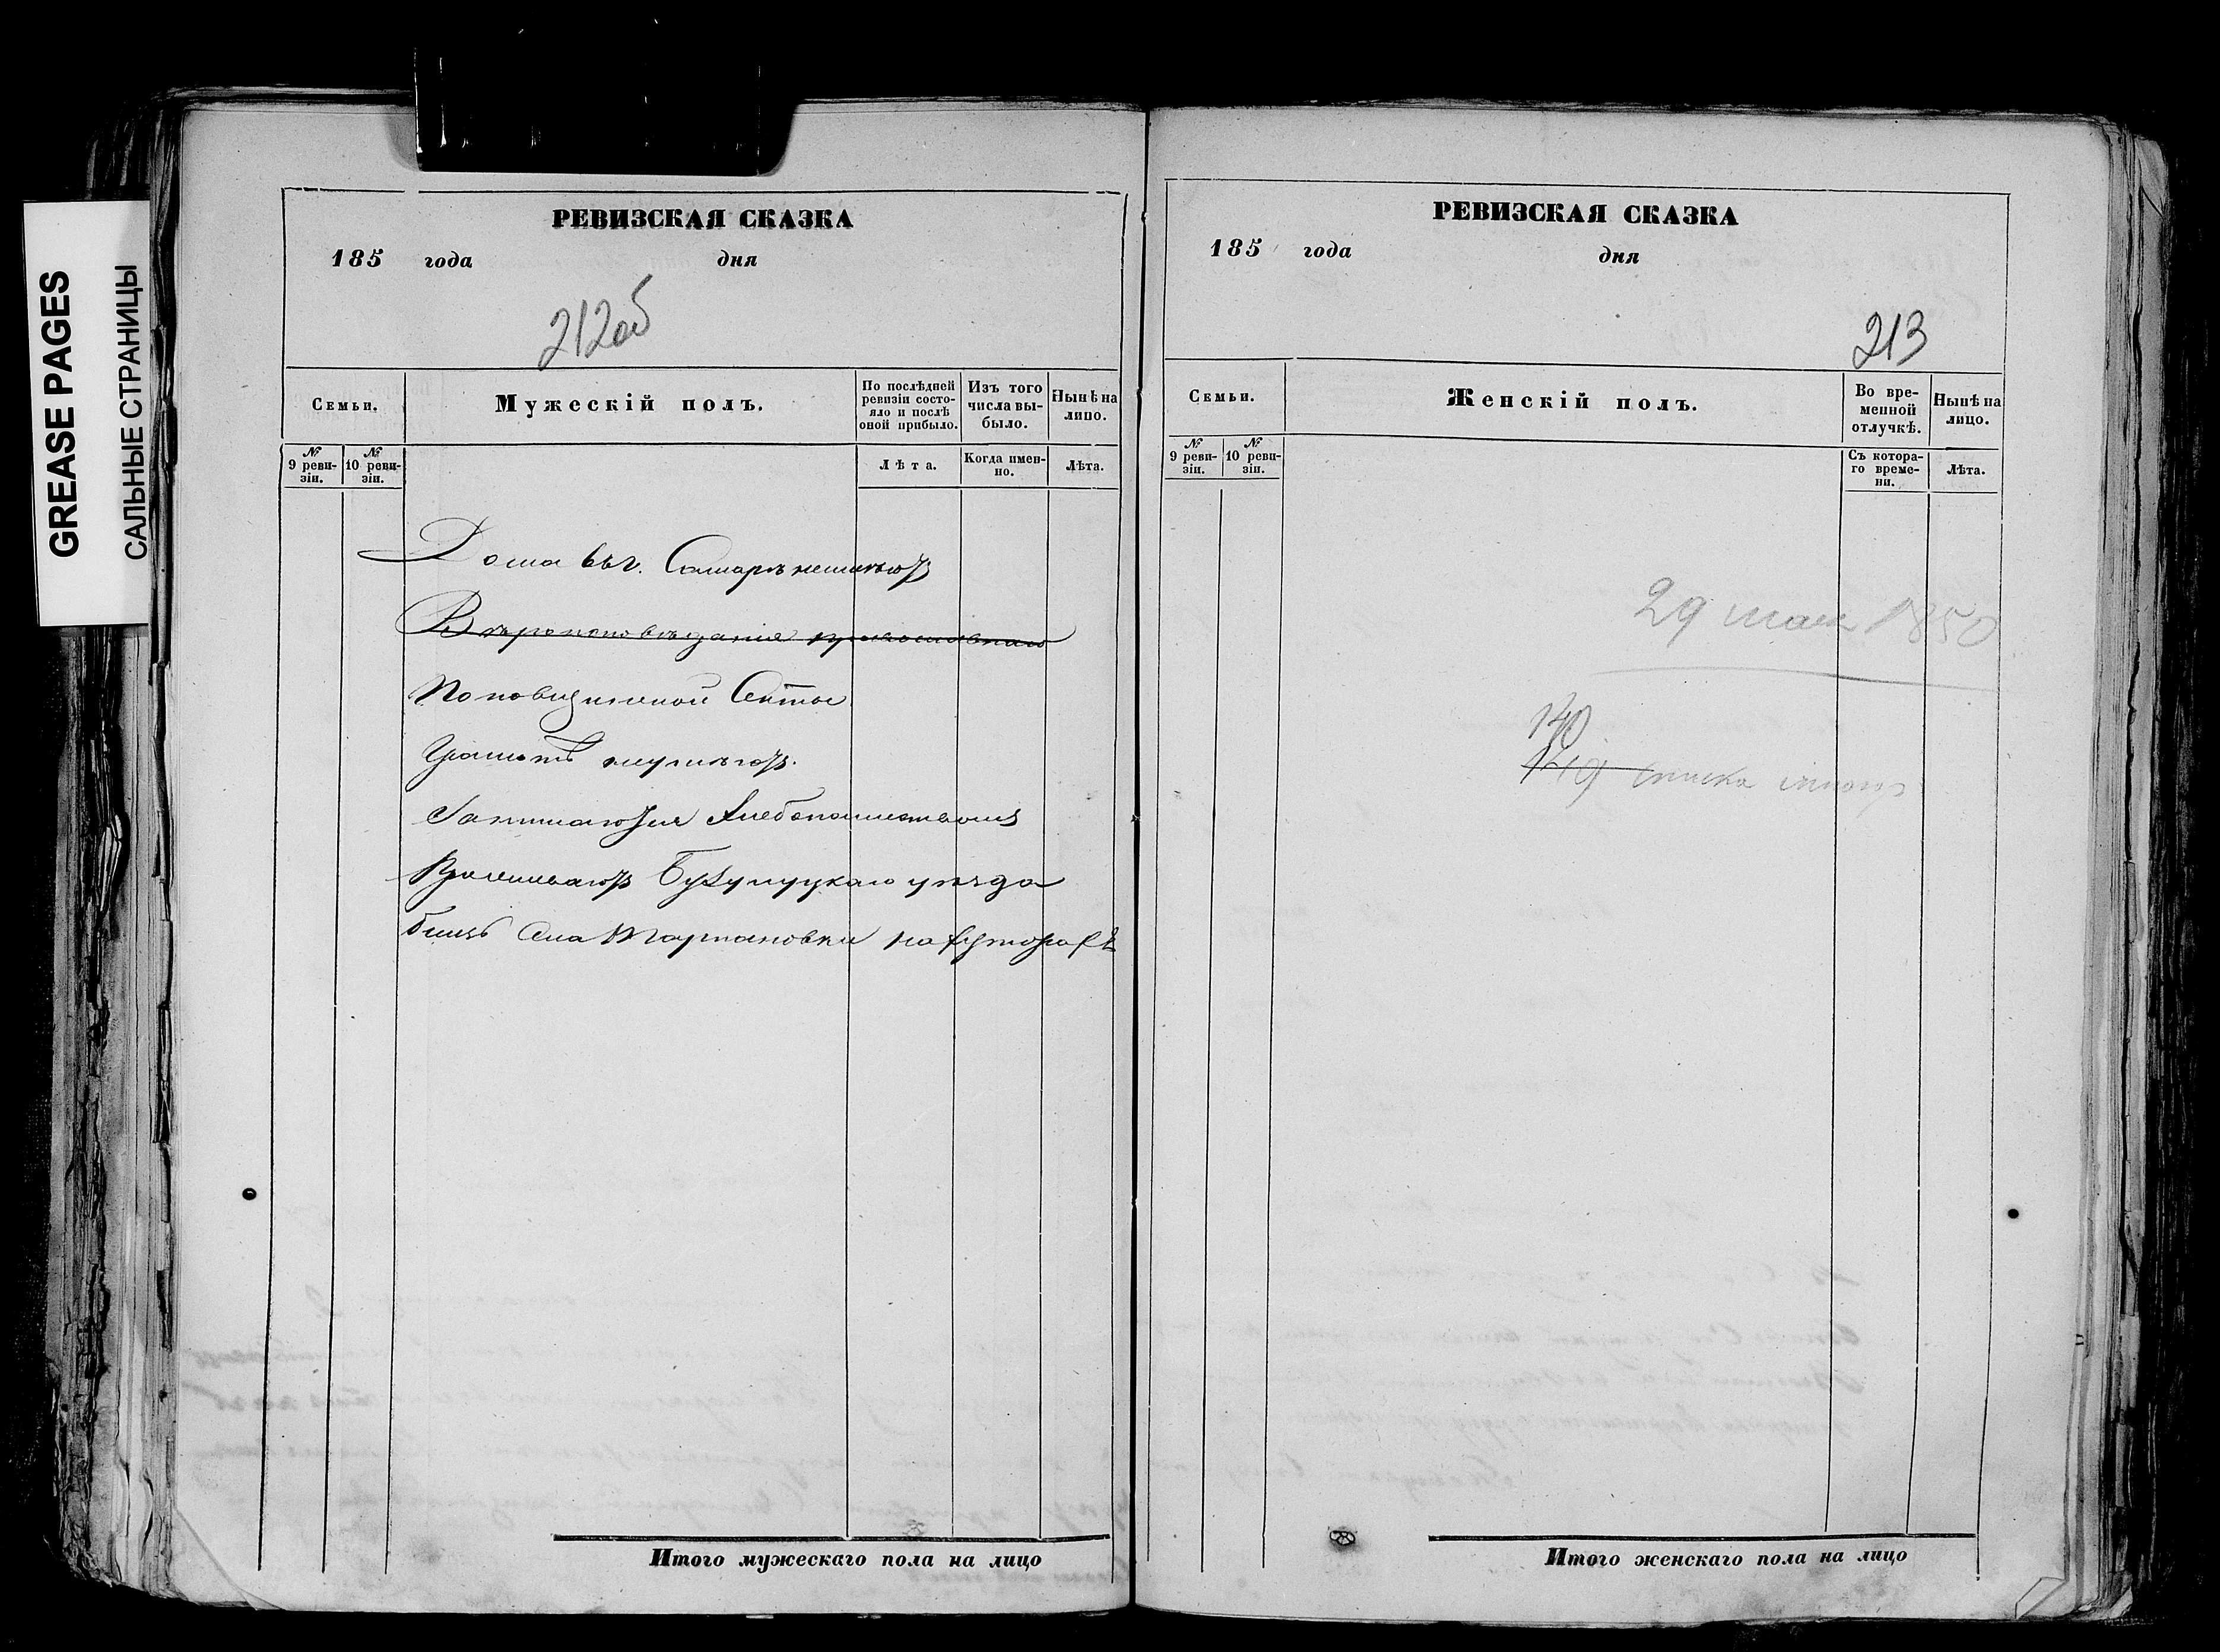 GREASE PAGES
САЛЬНЫЕ СТРАНИЦЫ
РЕВИЗСКАЯ СКАЗКА
185 года дня
212об
Семьи.
Мужескій полъ.
По послѣдней ревизіи состояло и послѣ оной прибыло.
Изъ того числа выбыло.
Нынѣ на лицо.
№ 9 ревизіи.
№ 10 ревизіи.
Лѣта.
Когда именно.
Лѣта.
Дома въ г. Самарѣ неимѣютъ
Вѣроисповѣданія православнаго
Поповщинской Секты
Грамотѣ неумѣютъ.
Занимаются Хлебопашествомъ
Проживаютъ Бузулуцкаго уѣзда
близъ Села Марьяновки на хуторахъ
Итого мужескаго пола на лицо
РЕВИЗСКАЯ СКАЗКА
185 года дня
213
Семьи.
Женскій полъ.
Во временной отлучкѣ.
Нынѣ на лицо.
№ 9 ревизіи.
№ 10 ревизіи.
Съ котораго времени.
Лѣта.
29 мая 1850
140
149 списка
Итого женскаго пола на лицо